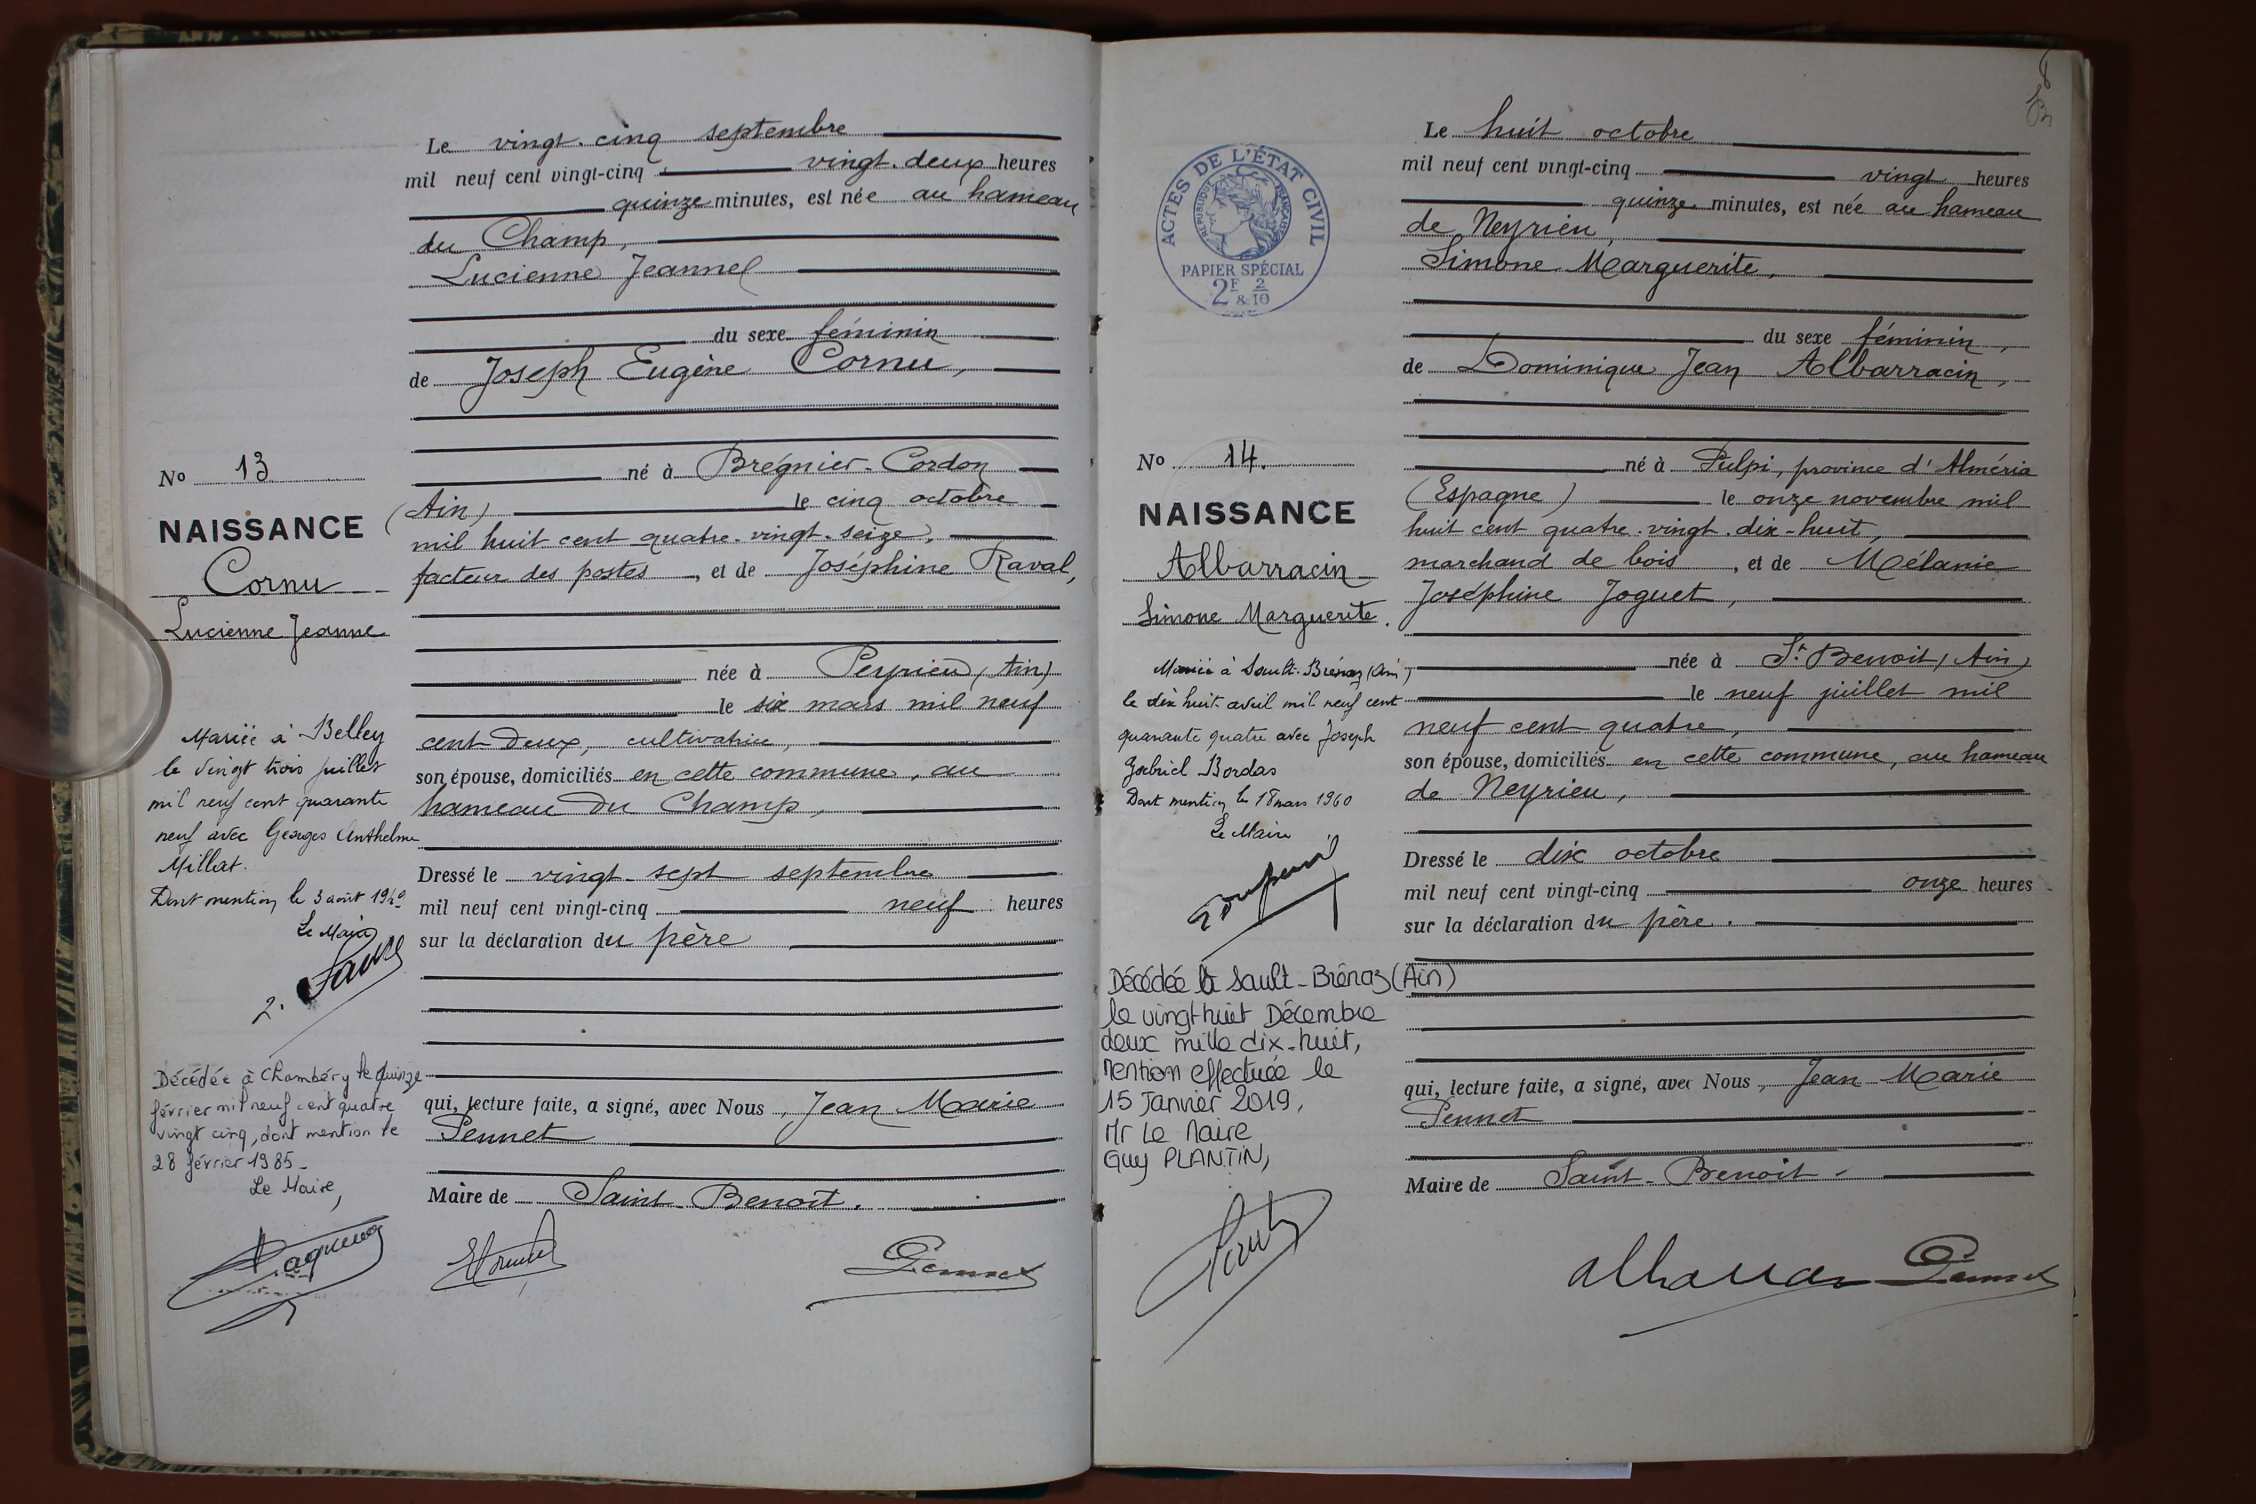 Le vingt-cinq septembre
mil neuf cent vingt-cinq vingt-deux heures
quinze minutes, est née au hameau
du Champ,
Lucienne Jeanne
du sexe féminin
de Joseph Eugène Cornu,
né à Brégnier-Cordon
(Ain) le cinq octobre
mil huit cent quatre-vingt-seize,
facteur des postes, et de Joséphine Raval,
née à Peyrieu (Ain)
le six mars mil neuf
cent deux, cultivatrice,
son épouse, domiciliés en cette commune, au
hameau du Champ,
Dressé le vingt-sept septembre
mil neuf cent vingt-cinq neuf heures
sur la déclaration du père
qui, lecture faite, a signé, avec Nous, Jean Marie
Pennet
Maire de Saint-Benoit.
No 13
NAISSANCE
Cornu
Lucienne Jeanne
Mariée à Belley
le vingt trois juillet
mil neuf cent quarante
neuf avec Georges Anthelme
Milliat.
Dont mention le 3 août 1949
Le Maire
Décédée à Chambéry le quinze
février mil neuf cent quatre
vingt cinq, dont mention le
28 février 1985-
Le Maire,
Pennet
8
ACTES DE L'ÉTAT CIVIL
RÉPUBLIQUE FRANÇAISE
PAPIER SPÉCIAL
2F 2
& 10
Le huit octobre
mil neuf cent vingt-cinq vingt heures
quinze minutes, est née au hameau
de Neyrieu,
Simone Marguerite,
du sexe féminin,
de Dominique Jean Albarracin,
né à Pulpi, province d'Alméria
(Espagne) le onze novembre mil
huit cent quatre-vingt-dix-huit,
marchand de bois, et de Mélanie
Joséphine Joguet,
née à St Benoit (Ain)
le neuf juillet mil
neuf cent quatre,
son épouse, domiciliés en cette commune, au hameau
de Neyrieu,
Dressé le dix octobre
mil neuf cent vingt-cinq onze heures
sur la déclaration du père.
qui, lecture faite, a signé, avec Nous, Jean Marie
Pennet
Maire de Saint-Benoit.
No 14.
NAISSANCE
Albarracin
Simone Marguerite.
Mariée à Sault-Brénaz (Ain)
le dix huit avril mil neuf cent
quarante quatre avec Joseph
Gabriel Bordas
Dont mention le 18 mars 1960
Le Maire
Décédée à Sault-Brénaz (Ain)
le vingt huit Décembre
deux mille dix-huit,
Mention effectuée le
15 Janvier 2019,
Mr Le Maire
Guy PLANTIN,
Pennet